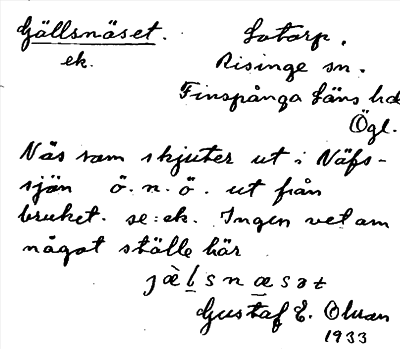 Gällsnäset. Lotorp.
ek. Risinge sn.
Finspånga Läns hd
Ögl.
Näs som skjuter ut i Näfs-
sjön ö.n.ö. ut från
bruket. se: ek. Ingen vet om
något ställe här
jæ̀lsnæsət
Gustaf E. Olsson
1933